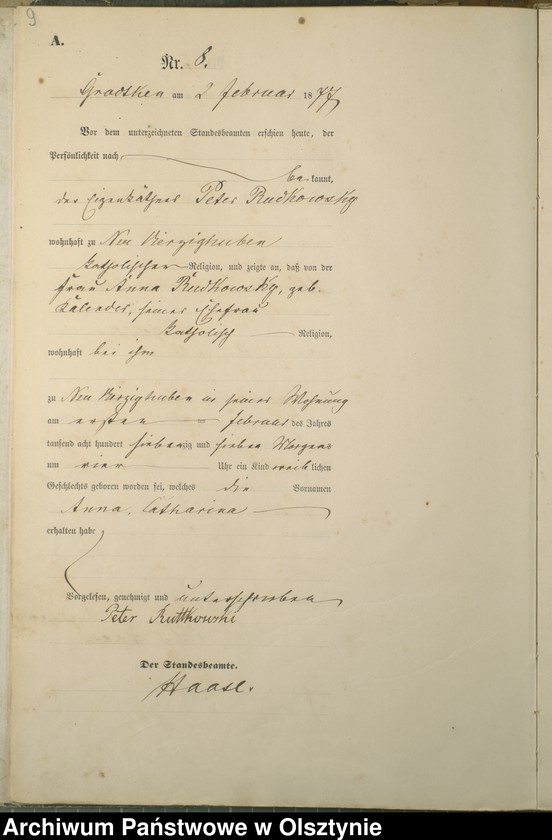 9
A.
Nr. 8.
Grodtken am 2 Februar 1877
Vor dem unterzeichneten Standesbeamten erschien heute, der
Persönlichkeit nach
be kannt,
der Eigenkäthner Peter Rudkowsky
wohnhaft zu Neu Vierzighuben
katholischer Religion, und zeigte an, daß von der
Frau Anna Rudkowsky, geb.
seiner Ehefrau
katholisch Religion,
wohnhaft bei ihm
zu Neu Vierzighuben in seiner Wohnung
am ersten Februar des Jahres
tausend acht hundert siebenzig und sieben Morgens
um vier Uhr ein Kind weiblichen
Geschlechts geboren worden sei, welches die Vornamen
Anna, Catharina
erhalten habe
Vorgelesen, genehmigt und unterschrieben
Peter Ruttkowski
Der Standesbeamte.
Haase.
Archiwum Państwowe w Olsztynie